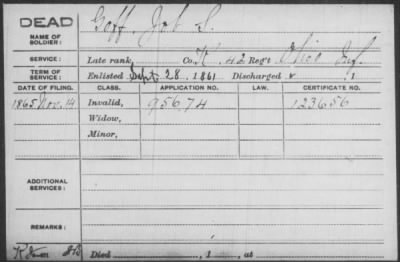 DEAD
NAME OF SOLDIER:
Goff, Job S.
SERVICE:
Late rank, Co. K, 42 Reg't Ohio Inf.
TERM OF SERVICE:
Enlisted Sept. 28, 1861 Discharged , 1
DATE OF FILING. CLASS. APPLICATION NO. LAW. CERTIFICATE NO.
1865 Nov. 14 Invalid, 95674 123656
Widow,
Minor,
ADDITIONAL SERVICES:
REMARKS:
Died , 1 , at